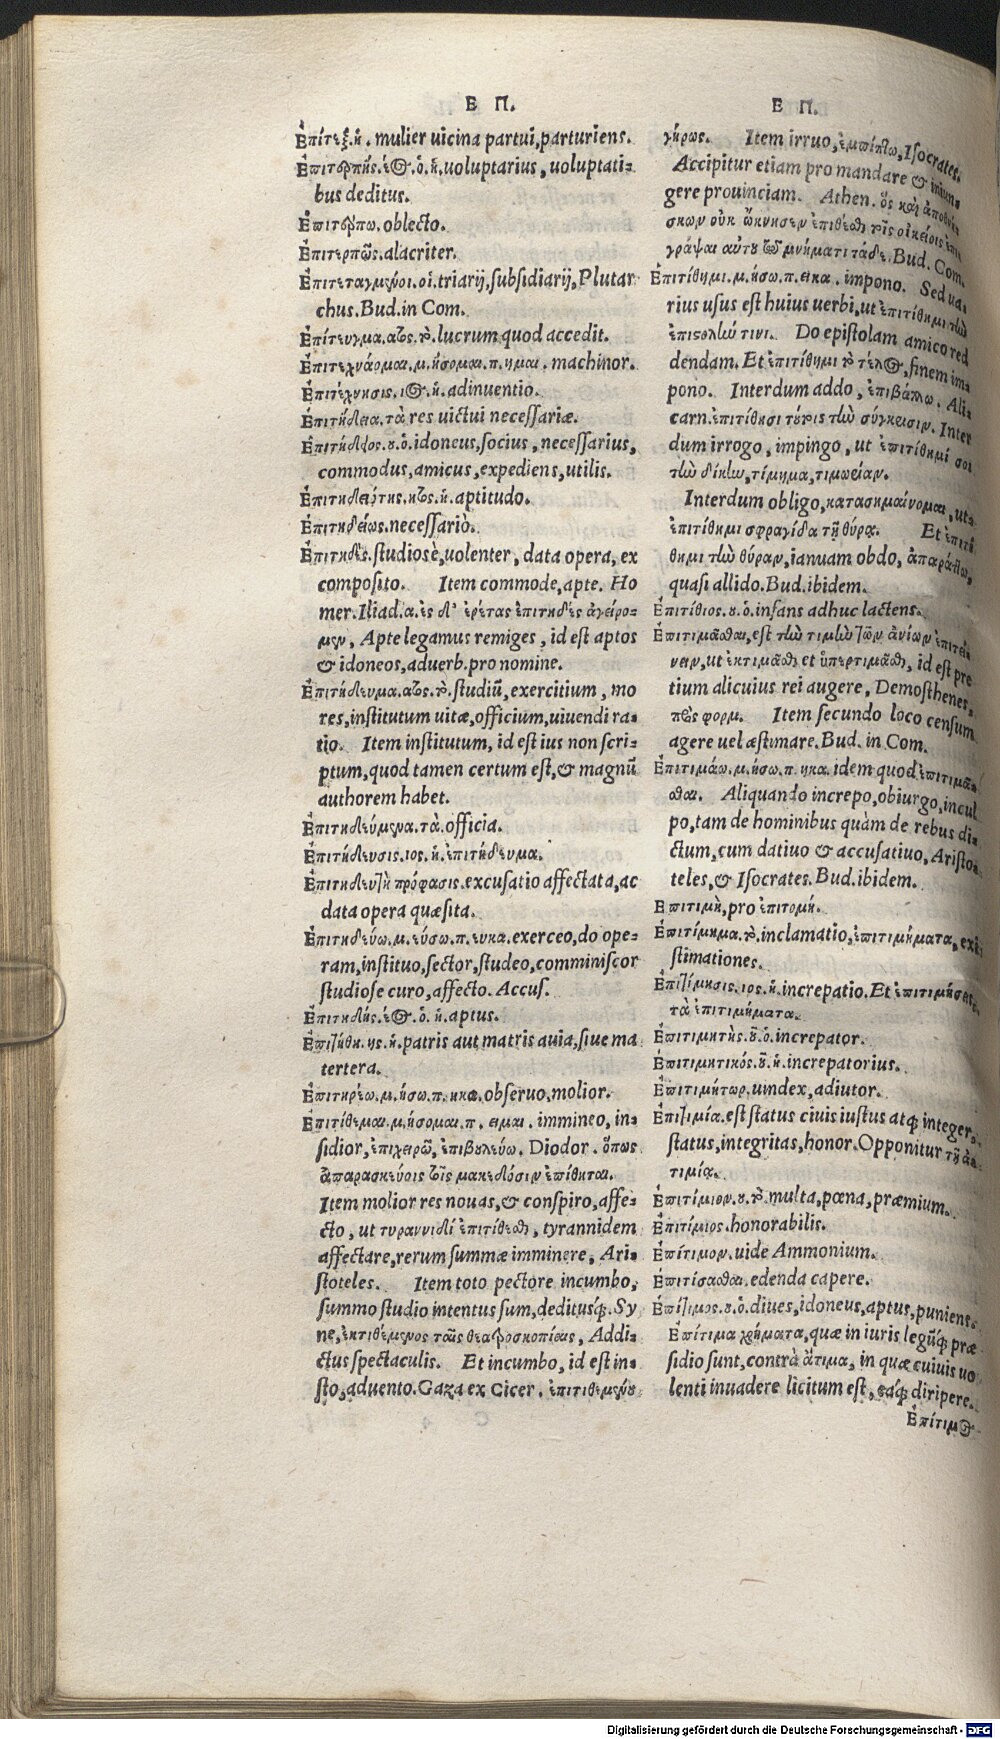 Ε Π.
Ἐπίτεξ. ἡ. mulier uicina partui, parturiens.
Ἐπιτερπὴς. έος. ὁ. ἡ. uoluptarius, uoluptati-
bus deditus.
Ἐπιτέρπω. oblecto.
Ἐπιτερπῶς. alacriter.
Ἐπιτεταγμένοι. οἱ. triarij, subsidiarij, Plutar
chus. Bud. in Com.
Ἐπίτευγμα. ατος. τὸ. lucrum quod accedit.
Ἐπιτεχνάομαι. μ. ήσομαι. π. ημαι. machinor.
Ἐπιτέχνησις. ιος. ἡ. adinuentio.
Ἐπιτήδεια. τὰ res uictui necessariæ.
Ἐπιτήδειος. ου. ὁ. idoneus, socius, necessarius,
commodus, amicus, expediens, utilis.
Ἐπιτηδειότης. ητος. ἡ. aptitudo.
Ἐπιτηδείως. necessariò.
Ἐπιτηδὲς. studiosè, uolenter, data opera, ex
composito. Item commode, apte. Ho
mer. Iliad. α. ἐς δ' ἐρέτας ἐπιτηδὲς ἀγείρο-
μεν, Apte legamus remiges, id est aptos
& idoneos, aduerb. pro nomine.
Ἐπιτήδευμα. ατος. τὸ. studiũ, exercitium, mo
res, institutum uitæ, officium, uiuendi ra-
tio. Item institutum, id est ius non scri-
ptum, quod tamen certum est, & magnũ
authorem habet.
Ἐπιτηδευόμενα. τὰ. officia.
Ἐπιτήδευσις. ιος. ἡ. ἐπιτήδευμα.
Ἐπιτηδευτὴ πρόφασις. excusatio affectata, ac
data opera quæsita.
Ἐπιτηδεύω. μ. εύσω. π. ευκα. exerceo, do ope-
ram, instituo, sector, studeo, comminiscor
studiose curo, affecto. Accus.
Ἐπιτηδὴς. έος. ὁ. ἡ. aptus.
Ἐπιτήθη. ης. ἡ. patris aut matris auia, siue ma
tertera.
Ἐπιτηρέω. μ. ήσω. π. ηκα. obseruo, molior.
Ἐπιτίθεμαι. μ. ήσομαι. π. ειμαι. immineo, in-
sidior, ἐπιχειρῶ, ἐπιβουλεύω. Diodor. ὅπως
ἀπαρασκεύοις τοῖς μακεδόσιν ἐπίθηται.
Item molior res nouas, & conspiro, affe-
cto, ut τυραννίδι ἐπιτίθεσθαι, tyrannidem
affectare, rerum summæ imminere, Ari-
stoteles. Item toto pectore incumbo,
summo studio intentus sum, deditusq́;. Sy
ne, ἐκτιθέμενος ταῖς θεατροσκοπίαις, Addi-
ctus spectaculis. Et incumbo, id est in-
sto, aduento. Gaza ex Cicer. ἐπιτιθεμένου
Ε Π.
γήρως. Item irruo, ἐμπίπτω, Isocrates.
Accipitur etiam pro mandare & iniun-
gere prouinciam. Athen. ὃς καὶ ἀποθνή
σκων οὐκ ὤκνησεν ἐπιθέσθαι τοῖς οἰκείοις ἐπι
γράψαι αὐτοῦ τῷ μνήματι τάδε. Bud. Com.
Ἐπιτίθημι. μ. ήσω. π. εικα. impono. Sed ua-
rius usus est huius uerbi, ut ἐπιτίθημι τὴν
ἐπιστολήν τινι. Do epistolam amico red
dendam. Et ἐπιτίθημι τὸ τέλος, finem im-
pono. Interdum addo, ἐπιβάλλω. Ali
carn. ἐπιτίθησι τούτοις τὴν σύγκεισιν. Inter
dum irrogo, impingo, ut ἐπιτίθημί σοι
τὴν δίκην, τίμημα, τιμωρίαν.
Interdum obligo, κατασημαίνομαι, ut
ἐπιτίθημι σφραγίδα τῇ θύρᾳ. Et ἐπιτί
θημι τὴν θύραν, ianuam obdo, ἀπαράττω,
quasi allido. Bud. ibidem.
Ἐπιτίθιος. ου. ὁ. infans adhuc lactens.
Ἐπιτιμᾶσθαι, est τὴν τιμὴν τῶν ὠνίων ἐπιτεί
νειν, ut ἐκτιμᾶσθαι et ὑπερτιμᾶσθαι, id est pre
tium alicuius rei augere, Demosthenes,
πρὸς φορμ. Item secundo loco censum
agere uel æstimare. Bud. in Com.
Ἐπιτιμάω. μ. ήσω. π. ηκα. idem quod ἐπιτιμᾶ-
σθαι. Aliquando increpo, obiurgo, incul
po, tam de hominibus quàm de rebus di-
ctum, cum datiuo & accusatiuo, Aristo-
teles, & Isocrates. Bud. ibidem.
Ἐπιτιμὴ, pro ἐπιτομή.
Ἐπιτίμημα. τὸ. inclamatio, ἐπιτιμήματα, exi
stimationes.
Ἐπιτίμησις. ιος. ἡ. increpatio. Et ἐπιτιμήσεις,
τὰ ἐπιτιμήματα.
Ἐπιτιμητὴς. οῦ. ὁ. increpator.
Ἐπιτιμητικός. οῦ. ὁ. increpatorius.
Ἐπιτιμήτωρ. uindex, adiutor.
Ἐπιτιμία. est status ciuis iustus atq; integer,
status, integritas, honor. Opponitur τῇ ἀ-
τιμίᾳ.
Ἐπιτίμιον. ου. τὸ. multa, pœna, præmium.
Ἐπιτίμιος. honorabilis.
Ἐπίτιμον. uide Ammonium.
Ἐπιτίσασθαι. edenda capere.
Ἐπίτιμος. ου. ὁ. diues, idoneus, aptus, puniens.
Ἐπίτιμα χρήματα, quæ in iuris legũq́; præ
sidio sunt, contrà ἄτιμα, in quæ cuiuis uo
lenti inuadere licitum est, eaq́; diripere.
Ἐπίτιμος
Digitalisierung gefördert durch die Deutsche Forschungsgemeinschaft - DFG